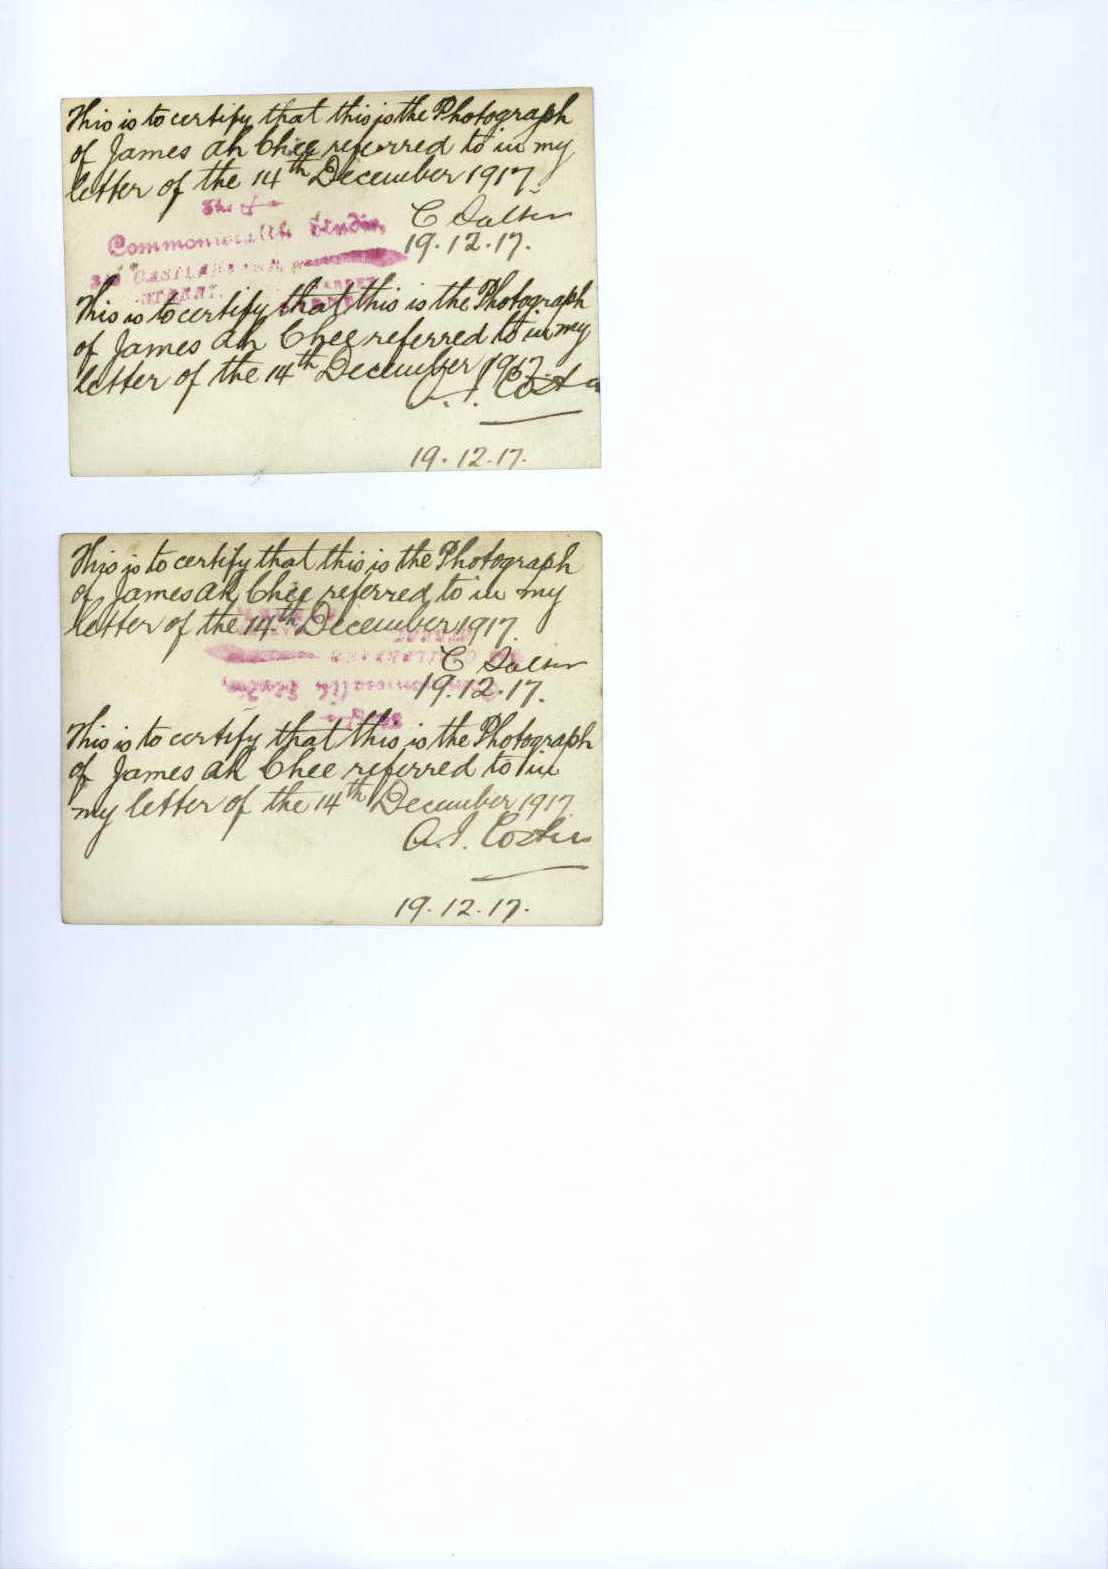 This is to certify that this is the Photograph
of James Ah Chee referred to in my
letter of the 14th December 1917.
The
C
Commonwealth Studio,
19.12.17.
This is to certify that this is the Photograph
of James Ah Chee referred to in my
letter of the 14th December 1917.
19.12.17.
This is to certify that this is the Photograph
of James Ah Chee referred to in my
letter of the 14th December 1917.
C
19.12.17.
Commonwealth Studio,
The
This is to certify that this is the Photograph
of James Ah Chee referred to in
my letter of the 14th December 1917
A.I. Costin
19.12.17.